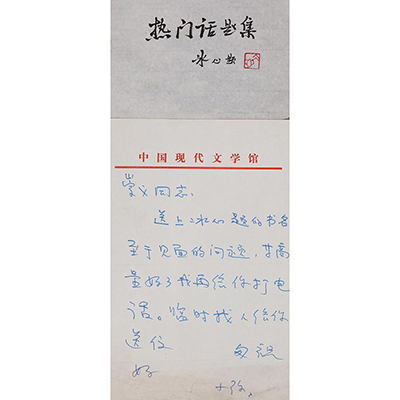 热门话题集
冰心题
中国现代文学馆
崇文同志:
送上冰心题的书名
至于见面的问题,等商
量好了我再给你打电
话。临时找人给你
送信 匆祝
好